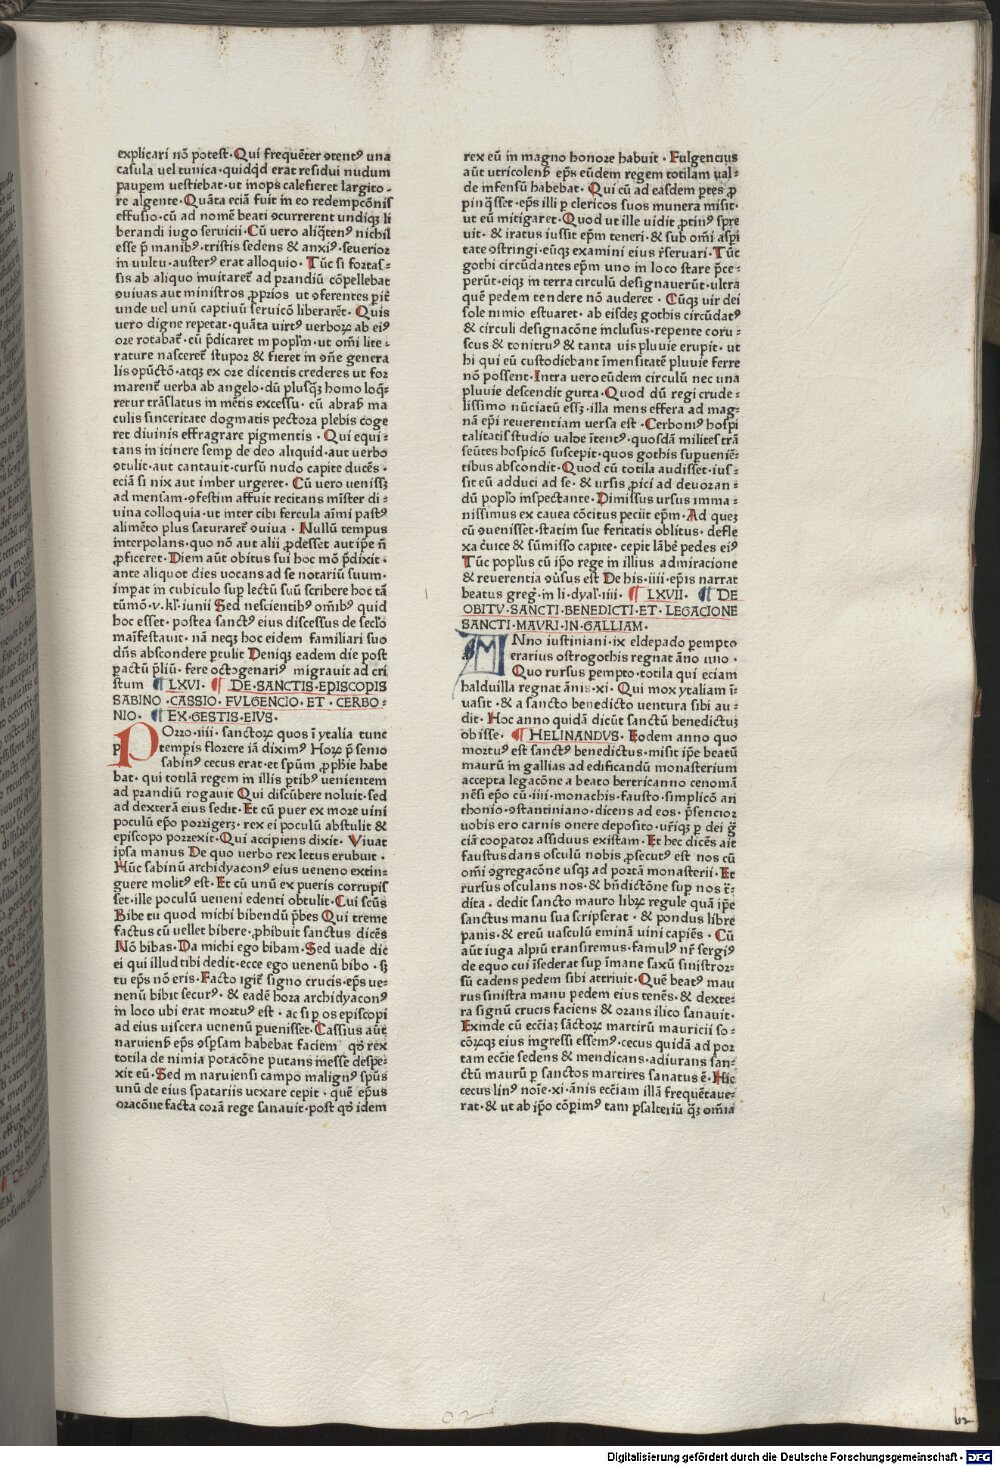 explicari nō potest· Qui frequēter ꝯtentꝰ una
casula uel tunica· quidqͥd erat residui nudum
pauꝑem uestiebat· ut inopꝭ calefieret largito-
re algente· Quāta eciā fuit in eo redempcōnis
effusio· cū ad nomē beati ꝯcurrerent undiqꝫ li
berandi iugo seruicii· Cū uero aliqͥtenꝰ nichil
esse p̄ manibꝰ· tristis sedens & anxiꝰ· seuerior
in uultu· austerꝰ erat alloquio· Tūc si fortas-
sis ab aliquo inuitaret̄ ad prandiū cōpellebat
ꝯuiuas aut ministros ꝓprios ut ꝯferentes pit̄
unde uel unū captiuū seruicō liberarēt· Quis
uero digne repetat· quāta uirtꝰ uerboꝝ ab eiꝰ
ore rotabat̄· cū p̄dicaret in popl̄m· ut om̄i lite-
rature nasceret̄ stupor & fieret in ꝯn̄e genera
lis ꝯpūctō· atqꝫ ex ore dicentis crederes ut for
marent̄ uerba ab angelo· dū plusqꝫ̄ homo loqͣ̄-
retur trāslatus in mētis excessu· cū abrah̄ ma
culis sinceritate dogmatis pectora plebis coge
ret diuinis effragrare pigmentis· Qui equi-
tans in itinere semꝑ de deo aliquid· aut uerbo
ꝯtulit· aut cantauit· cursū nudo capite ducēs·
eciā si nix aut imber urgeret· Cū uero uenissꝫ
ad mensam· ꝯfestim affuit recitans mīster di-
uina colloquia· ut inter cibi fercula aīmi pastꝰ
alimēto plus saturaret̄ ꝯuiua· Nullū tempus
interpolans· quo nō aut alii ꝓdesset aut ip̄e n̄
ꝓficeret· Diem aūt obitus sui hoc mō p̄dixit·
ante aliquot dies uocans ad se notariū suum·
imꝑat in cubiculo suꝑ lectū suū scribere hoc tā
tūmō· v· kl̄· iunii Sed nescientibꝰ om̄ibꝰ quid
hoc esset· postea sanctꝰ eius discessus de sec̄lo
maīfestauit· nā neqꝫ hoc eidem familiari suo
dn̄s abscondere ꝑtulit Denique eadem die post
ꝑactū p̄liū· fere octogenariꝰ migrauit ad cri
stum ¶ LXVI· ¶ DE·SANCTIS·EPISCOPIS
SABINO·CASSIO·FVLGENCIO·ET·CERBO-
NIO· ¶ EX·GESTIS·EIVS·
POrro·iiii·sanctoꝝ quos ī ytalia tunc
temꝑis florere iā diximꝰ Hoꝝ p̄ senio
sabinꝰ cecus erat· et spūm ꝓph̄ie habe
bat· qui totilā regem in illis ꝑtibꝰ uenientem
ad prandiū rogauit Qui discūbere noluit· sed
ad dexterā eius sedit· Et cū puer ex more uini
poculū ep̄o porrigerꝫ· rex ei poculū abstulit &
episcopo porrexit· Qui accipiens dixit· Viuat
ipsa manus De quo uerbo rex letus erubuit·
Hūc sabinū archidyaconꝰ eius ueneno extin-
guere molitꝰ est· Et cū unū ex pueris corrupis
set· ille poculū ueneni edenti obtulit· Cui sc̄us
Bibe tu quod michi bibendū p̄bes Qui treme
factus cū uellet bibere· ꝓhibuit sanctus dicēs
Nō bibas· Da michi ego bibam· Sed uade dic
ei qui illud tibi dedit· ecce ego uenenū bibo· sꝫ
tu ep̄s nō eris· Facto igit̄ signo crucis· ep̄s ue-
nenū bibit securꝰ· & eadē hora archidyaconꝰ
in loco ubi erat mortuꝰ est· ac si p os episcopi
ad eius uiscera uenenū ꝑuenisset· Cassius aūt
naruienꝭ ep̄s ꝯspsam habebat faciem qd̄ rex
totila de nimia potacōne putans inesse despe-
xit eū· Sed in naruiensi campo malignꝰ spūs
unū de eius spatariis uexare cepit· quē ep̄us
oracōne facta corā rege sanauit· post qd̄ idem
rex eū in magno honore habuit· Fulgencius
aūt utricolenꝭ ep̄s eūdem regem totilam ual-
de infensū habebat· Qui cū ad easdem ꝑtes ꝓ
pinqͣsset· ep̄s illi p clericos suos munera misit·
ut eū mitigaret· Quod ut ille uidit ꝓtinꝰ spre
uit· & iratus iussit ep̄m teneri· & sub om̄i aspi
tate ꝯstringi· eūqꝫ examini eius r̄seruari· Tūc
gothi circūdantes ep̄m uno in loco stare p̄ce-
perūt· eiqꝫ in terra circulū designauerūt· ultra
quē pedem tendere nō auderet· Cūqꝫ uir dei
sole nimio estuaret· ab eisdeꝫ gothis circūdatꝰ
& circuli designacōne inclusus· repente coru-
scus & tonitruꝰ & tanta uis pluuie erupit· ut
hi qui eū custodiebant īmensitatē pluuie ferre
nō possent· Intra uero eūdem circulū nec una
pluuie descendit gutta· Quod dū regi crude-
lissimo nūciatū essꝫ· illa mens effera ad mag-
nā ep̄i reuerentiam uersa est· Cerboniꝰ hospi
talitatis studio ualde ītentꝰ· quosdā milites trā
seūtes hospicō suscepit· quos gothis suꝑueniē-
tibus abscondit· Quod cū totila audisset· ius-
sit eū adduci ad se· & ursis ꝓici ad deuoran-
dū popl̄o inspectante· Dimissus ursus imma-
nissimus ex cauea cōcitus peciit ep̄m· Ad queꝫ
cū ꝯuenisset· statim sue feritatis oblitus· defle
xa c̄uice & sūmisso capite· cepit lābē pedes eiꝰ
Tūc popl̄us cū ip̄o rege in illius admiracione
& reuerentia ꝯuersus est De his·iiii·ep̄is narrat
beatus greḡ· in li· dyal̄· iiii· ¶ LXVII· ¶ DE
OBITV·SANCTI·BENEDICTI·ET·LEGACIONE
SANCTI·MAVRI·IN·GALLIAM·
ANno iustiniani·ix eldepado ꝑempto
erarius ostrogothis regnat āno uno·
Quo rursus ꝑempto· totila qui eciam
balduilla regnat ānis·xi· Qui mox ytaliam ī-
uasit· & a sancto benedicto uentura sibi au-
dit· Hoc anno quidā dicūt sanctū benedictuꝫ
obisse· ¶ HELINANDVS· Eodem anno quo
mortuꝰ est sanctꝰ benedictus· misit ip̄e beatū
maurū in gallias ad edificandū monasterium
accepta legacōne a beato bertricanno cenomā
nēsi ep̄o cū·iiii·monachis· fausto· simplicō an
thonio· ꝯstantiniano· dicens ad eos· p̄sencior
uobis ero carnis onere deposito· ur̄iqꝫ p dei ḡ
ciā cooꝑator assiduus existam· Et hec dicēs ait
faustus dans osculū nobis ꝓsecutꝰ est nos cū
om̄i ꝯgregacōne usqꝫ ad portā monasterii· Et
rursus osculans nos· & bn̄dictōne suꝑ nos r̄-
dita· dedit sancto mauro libꝝ regule quā ip̄e
sanctus manu sua scripserat· & pondus libre
panis· & ereū uasculū eminā uini capiēs· Cū
aūt iuga alpiū transiremus· famulꝰ nr̄ sergiꝰ
de equo cui īsederat suꝑ īmane saxū sinistror-
sū cadens pedem sibi attriuit· Quē beatꝰ mau
rus sinistra manu pedem eius tenēs· & dexte-
ra signū crucis faciens & orans ilico sanauit·
Exinde cū ecc̄iaꝫ sāctoꝝ martirū mauricii so-
cōꝝqꝫ eius ingressi essemꝰ· cecus quidā ad por
tam ecc̄ie sedens & mendicans· adiurans san-
ctū maurū p sanctos martires sanatus ē· Hic
cecus linꝰ noīe·xi·ānis ecc̄iam illā frequētaue-
rat· & ut ab ip̄o cōꝑimꝰ tam psalteriū qͣꝫ om̄ia
62
Digitalisierung gefördert durch die Deutsche Forschungsgemeinschaft · DFG